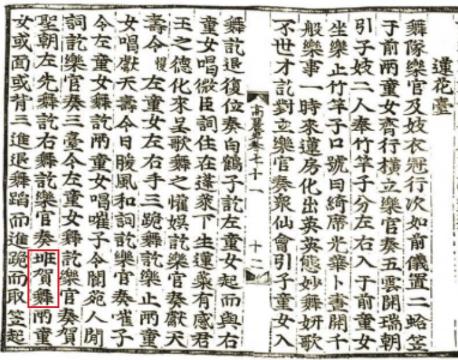 蓮花臺
舞隊樂官及妓衣冠行次如前儀置二蛤笠
于前兩童女齊行橫立樂官奏五雲開瑞朝
引子妓二人奉竹竿子分左右入于前童女
坐樂止竹竿子口號曰綺席光華卜晝開千
般樂事一時來蓮房化出英英態妙舞妍歌
不世才訖對立樂官奏衆仙會引子童女入
高麗史卷七十一 十二
舞訖退復位奏白鶴子訖左童女起而與右
童女唱微臣詞住在蓬萊下生蓮蘂有感君
王之德化來呈歌舞之懽娛訖樂官奏獻天
壽令慢左童女左右手三跪舞訖樂止兩童
女唱獻天壽令日暖風和詞訖樂官奏嗺子
令左童女舞訖兩童女唱嗺子令閬苑人間
詞訖樂官奏三臺令左童女舞訖樂官奏賀
聖朝左先舞訖右舞訖樂官奏班賀舞兩童
女或面或背三進退舞蹈而進跪而取笠起